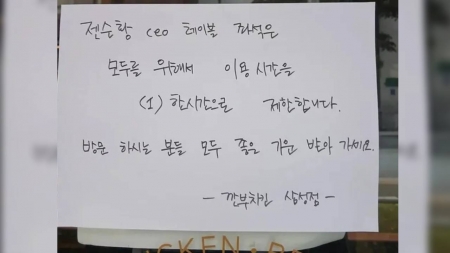 젠슨황 ceo 테이블 좌석은
모두를 위해서 이용시간을
(1) 한시간으로 제한합니다.
방문 하시는 분들 모두 좋은 기운 받아 가세요.
- 깐부치킨 삼성점 -